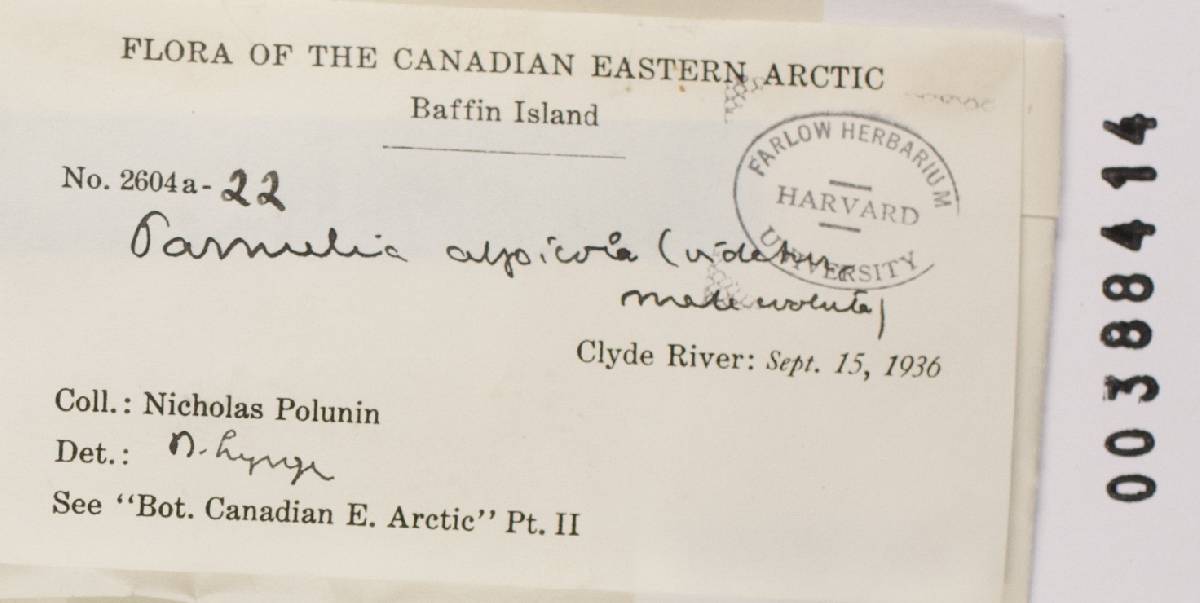 FLORA OF THE CANADIAN EASTERN ARCTIC
Baffin Island
FARLOW HERBARIUM
HARVARD
UNIVERSITY
No. 2604a-22
Parmelia alpicola (videtur
male evoluta)
Clyde River: Sept. 15, 1936
Coll.: Nicholas Polunin
Det.: B. Lynge
See "Bot. Canadian E. Arctic" Pt. II
00388414